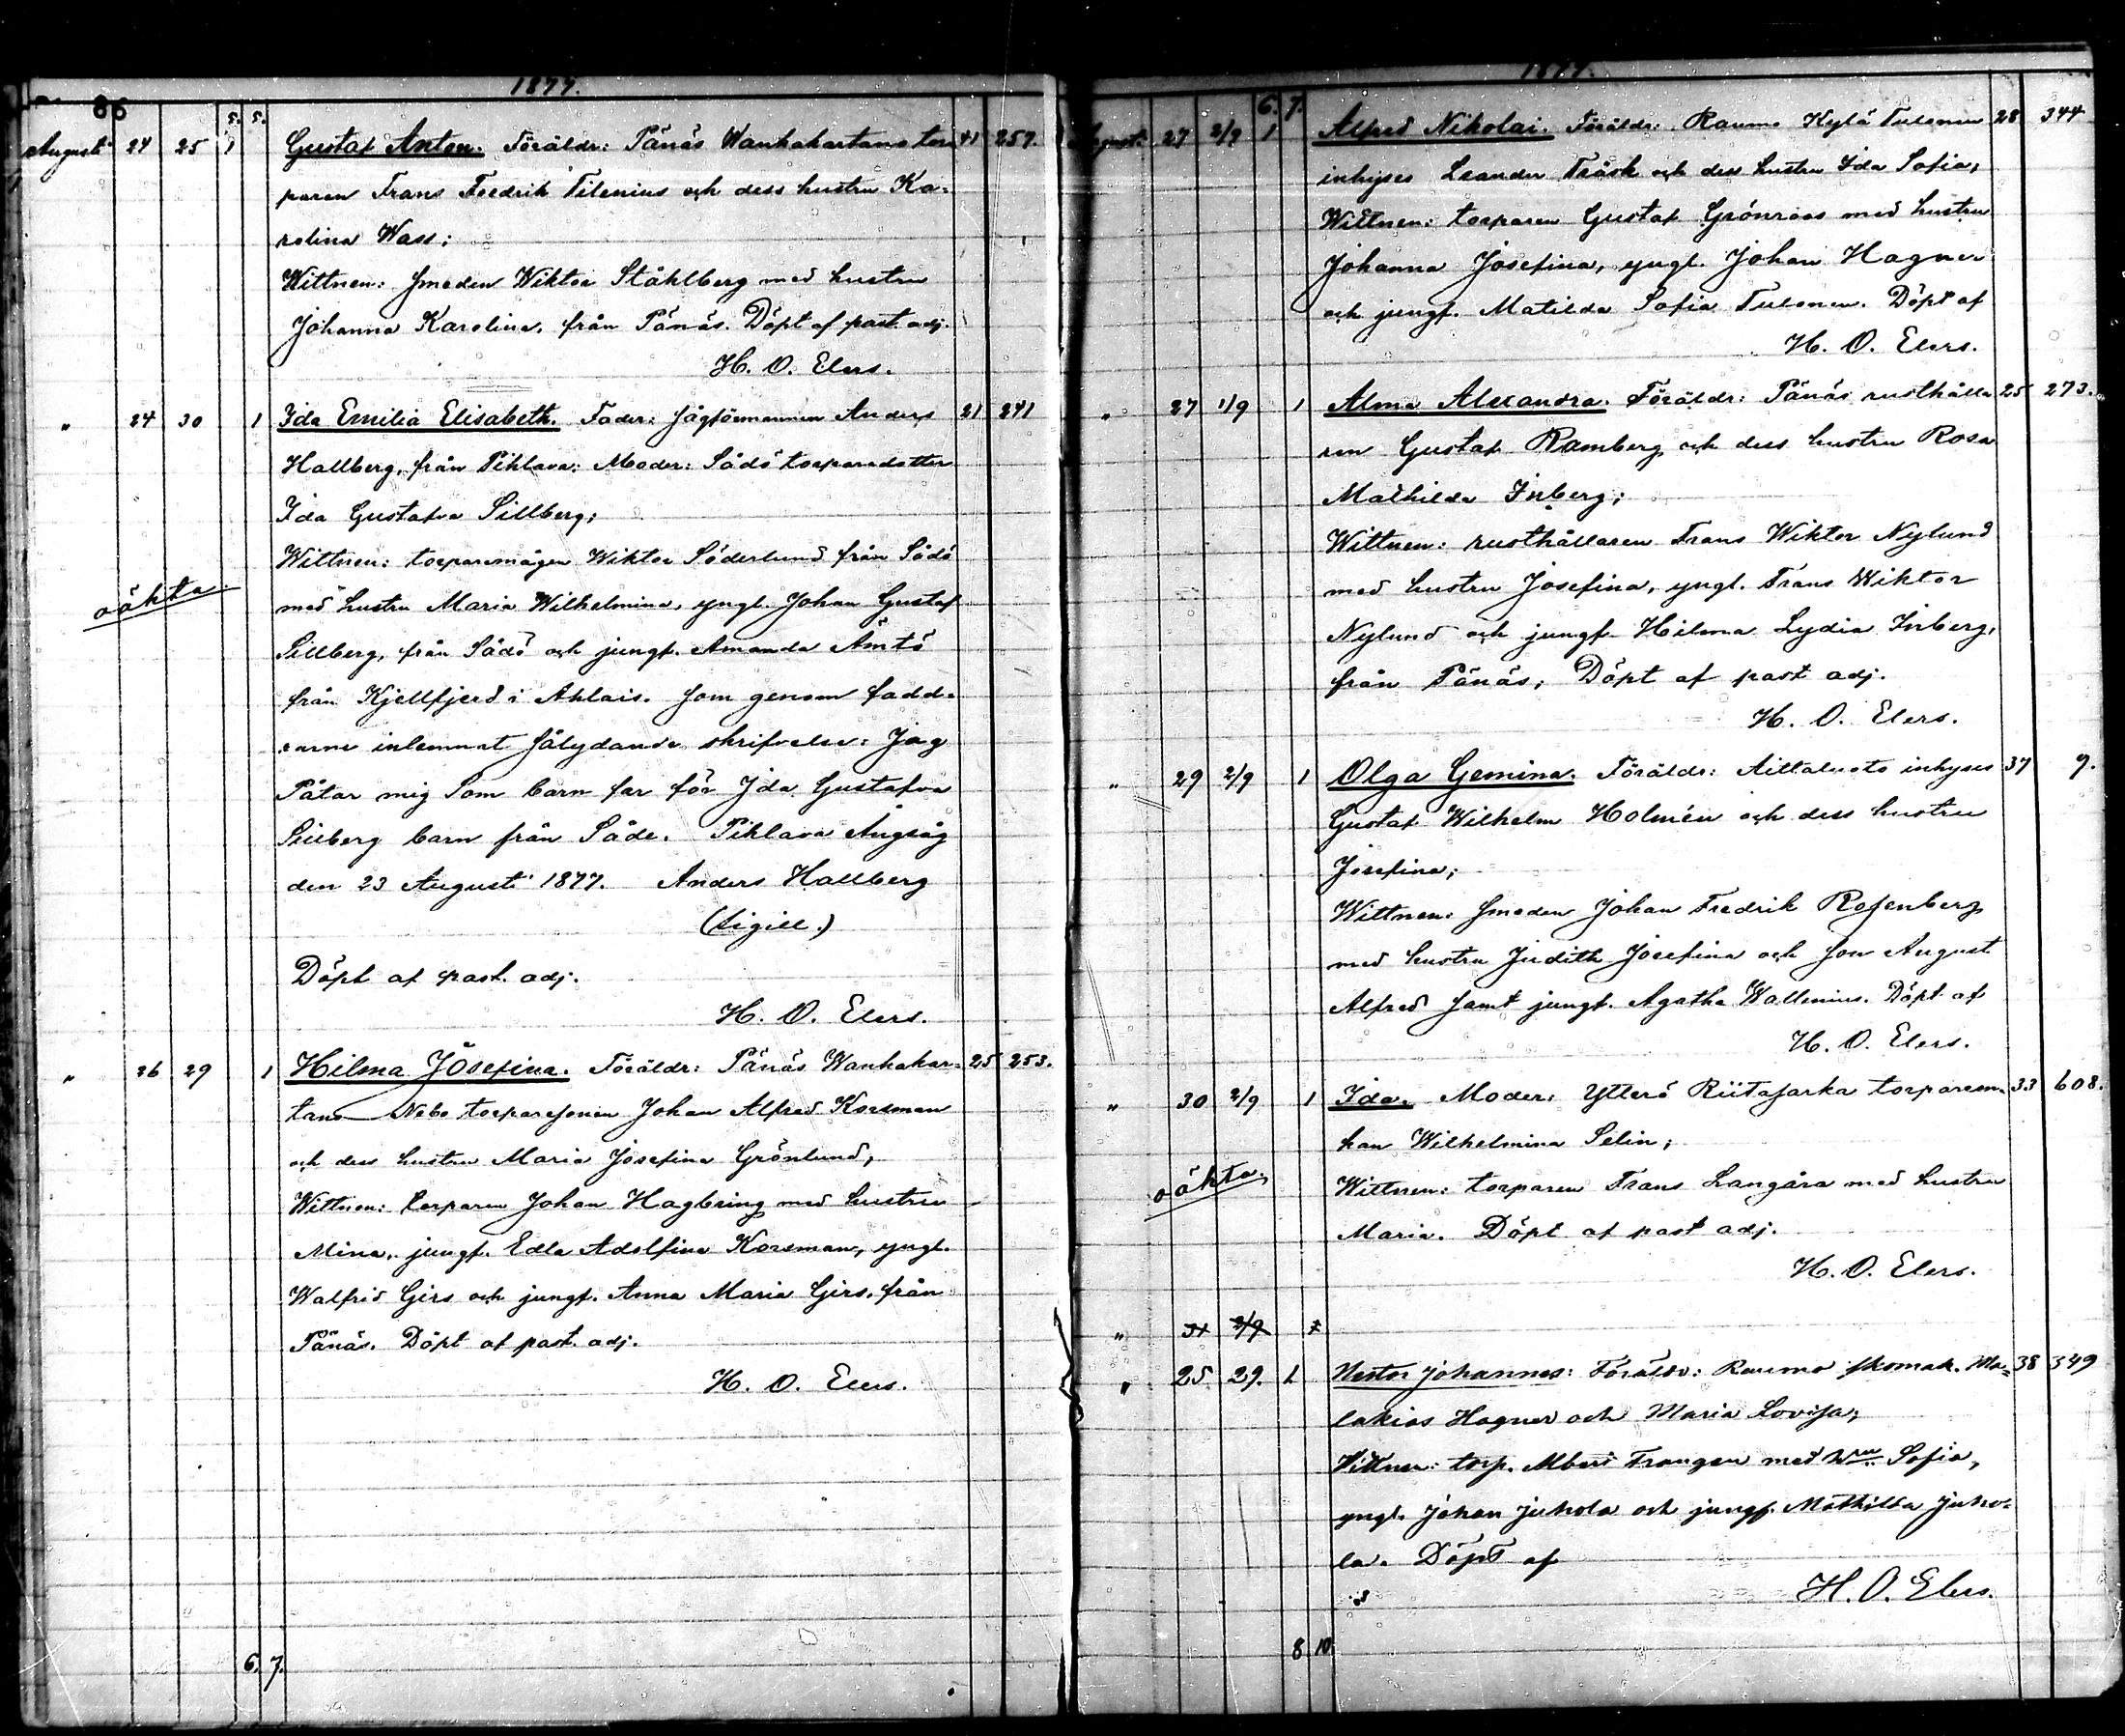 1877.
86
5. 5.
August 24 25 1 Gustaf Anton. Föräldr: Pänäs Wanhakartano tor- 41 257.
paren Frans Fredrik Tilenius och dess hustru Ka-
rolina Wass;
Wittnen: Smeden Wiktor Ståhlberg med hustru
Johanna Karolina, från Pänäs. Döpt af past. adj.
H. O. Elers.
" 24 30 1 Ida Emilia Elisabeth. Fader: Sågförmannen Anders 21 241
Hallberg, från Pihlava: Moder: Sådö torparedotter
Ida Gustafva Sillberg;
Wittnen: torparemågen Wiktor Söderlund från Sådö
oäkta
med hustru Maria Wilhelmina, yngl. Johan Gustaf
Sillberg, från Sådö och jungf. Amanda Ämtö
från Kjellfjerd i Ahlais. Som genom fadd-
rarne inlemnat sålydande skrifvelse: Jag
Påtar mig Som barn far för Ida Gustafva
Sillberg barn från Såde. Pihlava Ångsåg
den 23 Augusti 1877. Anders Hallberg
(Sigill.)
Döpt af past. adj.
H. O. Elers.
" 26 29 1 Hilma Josefina. Föräldr: Pänäs Wanhakar- 25 253.
tano Nebo torparesonen Johan Alfred Korsman
och dess hustru Maria Josefina Grönlund,
Wittnen: torparen Johan Hagbring med hustru
Mina, jungf. Edla Adolfina Korsman, yngl.
Walfrid Girs och jungf. Anna Maria Girs, från
Pänäs. Döpt af past. adj.
H. O. Elers.
6. 7.
1877.
6. 7.
August. 27 2/9 1 Alfred Nikolai. Föräldr: Raumo Kylä Tulonen 28 344
inhyses Leander Träsk och dess hustru Ida Sofia;
Wittnen: torparen Gustaf Grönroos med hustru
Johanna Josefina, yngl. Johan Hagner
och jungf. Matilda Sofia Tulonen. Döpt af
H. O. Elers.
" 27 1/9 1 Alma Alexandra. Föräldr: Pänäs rusthålla- 25 273.
ren Gustaf Ramberg och dess hustru Rosa
Mathilda Inberg;
Wittnen: rusthållaren Frans Wiktor Nylund
med hustru Josefina, yngl. Frans Wiktor
Nylund och jungf. Hilma Lydia Inberg,
från Pänäs; Döpt af past adj.
H. O. Elers.
" 29 2/9 1 Olga Gemina. Föräldr: Aittaluoto inhyses 37 9.
Gustaf Wilhelm Holmén och dess hustru
Josefina;
Wittnen: Smeden Johan Fredrik Rosenberg
med hustru Judith Josefina och son August
Alfred samt jungf. Agatha Wallenius. Döpt af
H. O. Elers.
" 30 2/9 1 Ida. Moder: Ytterö Riitasarka torparem- 33 608.
kan Wilhelmina Selin;
oäkta
Wittnen: torparen Frans Langåra med hustru
Maria. Döpt af past adj.
H. O. Elers.
" 31 2/9 1
" 25 29. 1 Nestor Johannes: Föräldr: Raumo skomak. Ma- 38 349
lakias Hagner och Maria Lovisa;
Wittnen: torp. Albert Frangen med Sofia,
yngl. Johan Juhola och jungf. Mathilda Juho-
la. Döpt af
H. O. Elers.
8 10